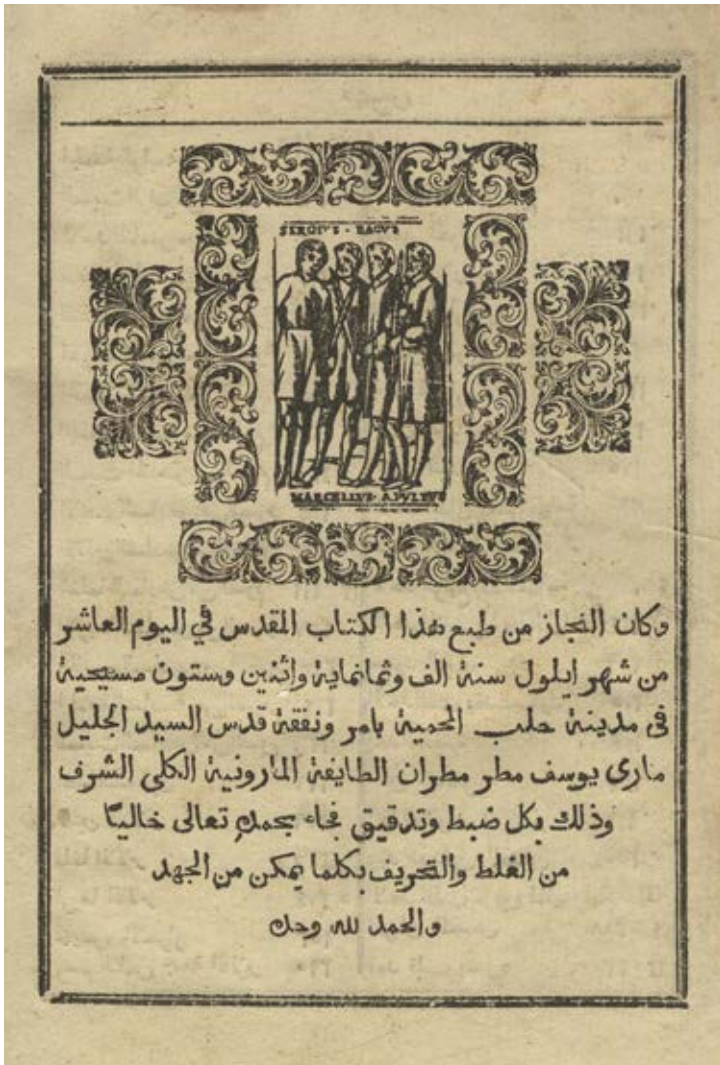 SERGIVS - BACVS
MARCELLVS - APVLEVS
وكان النجاز من طبع هذا الكتاب المقدس في اليوم العاشر
من شهر ايلول سنة الف وثمانماية واثنين وستون مسيحية
في مدينة حلب المحمية بامر ونفقة قدس السيد الجليل
مارى يوسف مطر مطران الطايفة المارونية الكلى الشرف
وذلك بكل ضبط وتدقيق فجاء بحمدهِ تعالى خالياً
من الغلط والتحريف بكلما يمكن من الجهد
والحمد لله وحده